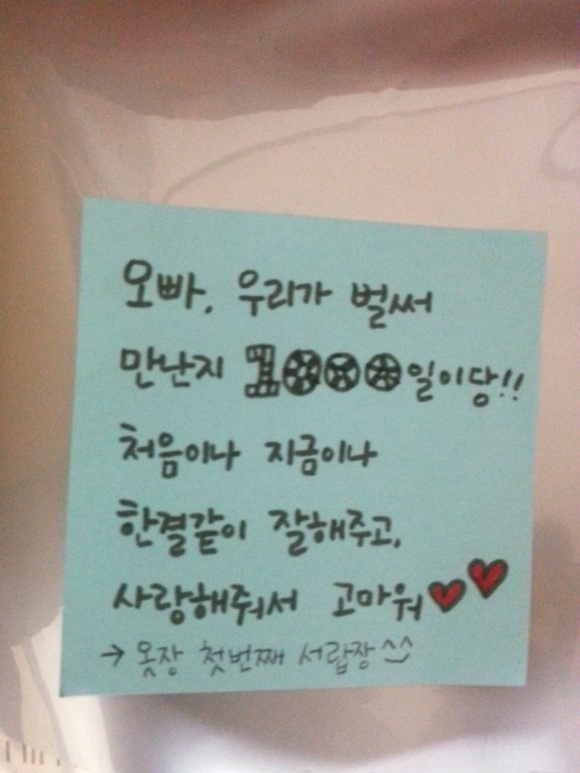 오빠, 우리가 벌써
만난지 1000일이당!!
처음이나 지금이나
한결같이 잘해주고,
사랑해줘서 고마워♥♥
→ 옷장 첫번째 서랍장^^